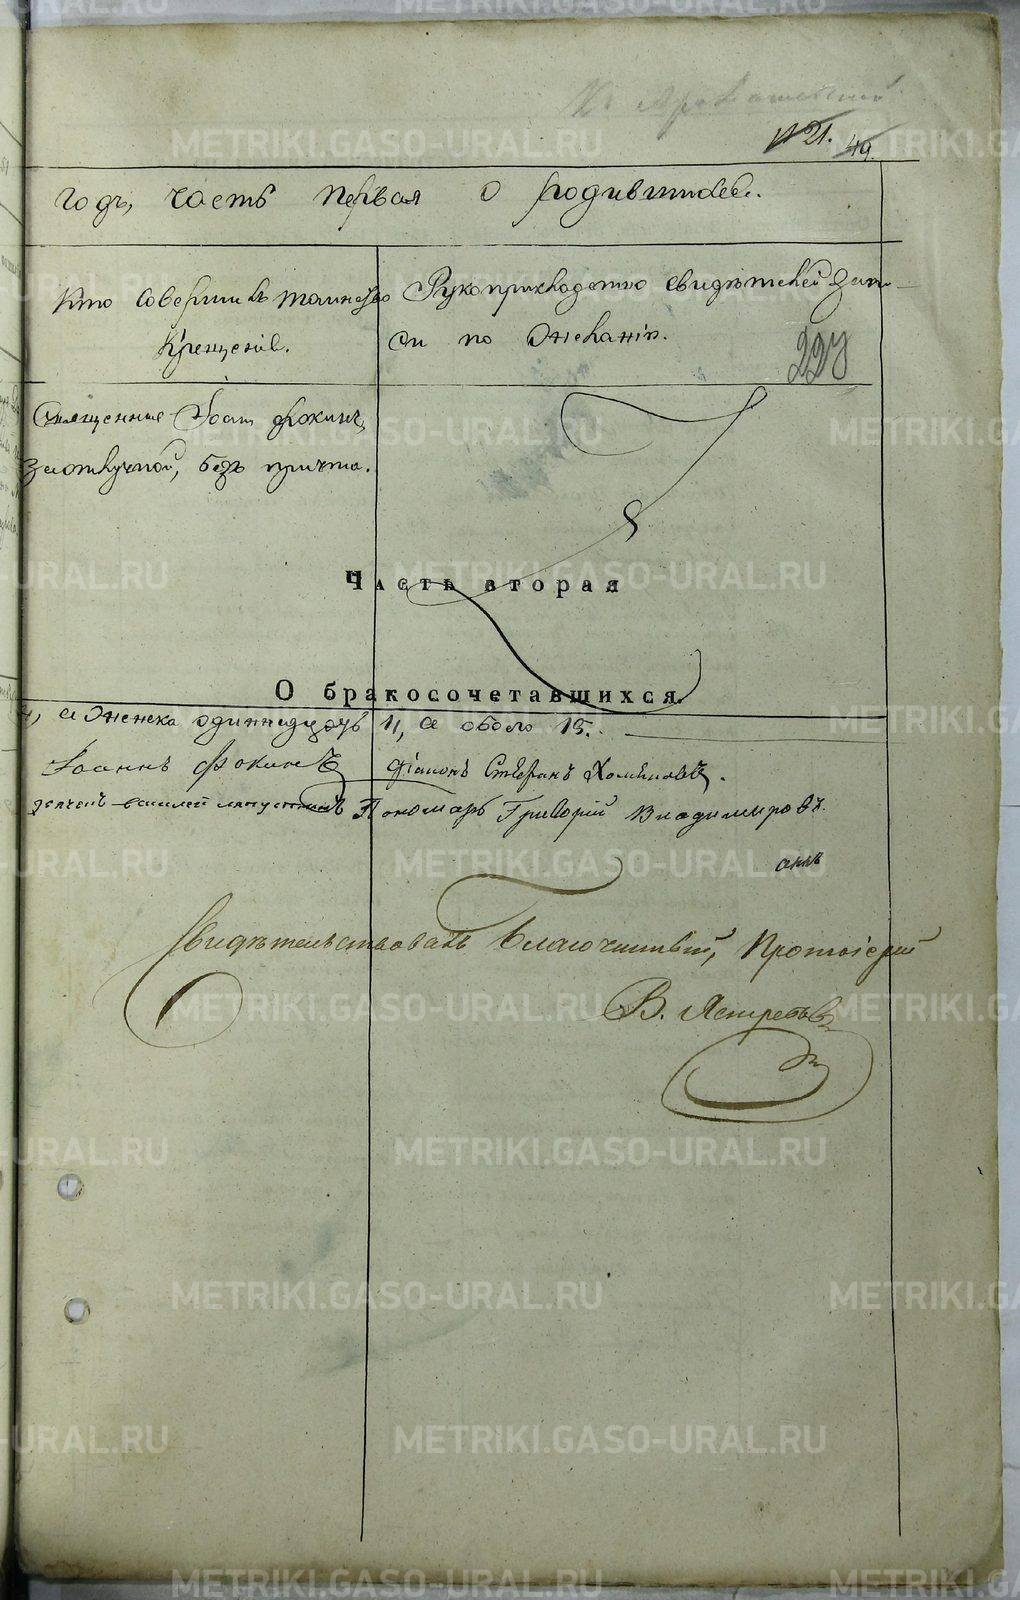 № 21.
49.
годъ, часть первая о родившихся.
Кто совершилъ таинство
Крещенія.
Рукоприкладство свидѣтелей запи-
си по желанію.
227
Священникъ Іоаннъ Фокинъ,
заштатной, безъ причта.
Часть вторая
О бракосочетавшихся.
а женска одиннадцать 11, а обоего 15.
Іоаннъ Фокинъ
Діаконъ Стефанъ Хомяковъ.
Василей
Пономарь Григорій Владимировъ.
Свидѣтельствовалъ Благочинный, Протоіерей
В. Ястребовъ
METRIKI.GASO-URAL.RU